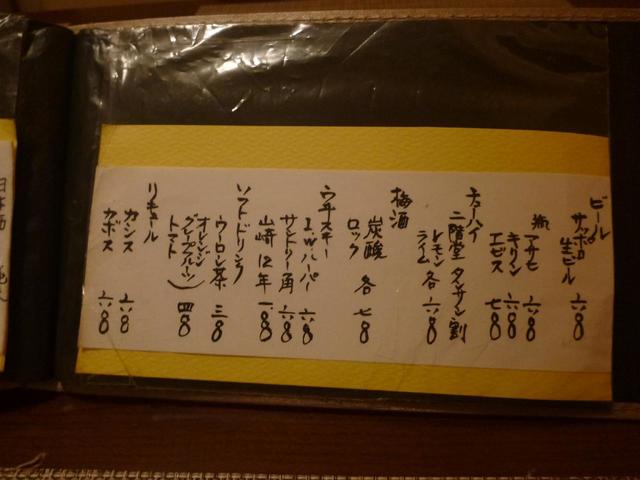 ビール
サッポロ
生ビール 六〇〇
瓶 アサヒ 六〇〇
キリン 六〇〇
エビス 七〇〇
チューハイ
二階堂 タンサン割
レモン
ライム 各 六〇〇
梅酒
炭酸
ロック 各 七〇〇
ウヰスキー
I.Wハーパー 六〇〇
サントリー角 六〇〇
山崎12年 一〇〇〇
ソフトドリンク
ウーロン茶 三〇〇
オレンジ
グレープフルーツ
トマト 四〇〇
リキュール
カシス 六〇〇
カボス 六〇〇
日本酒